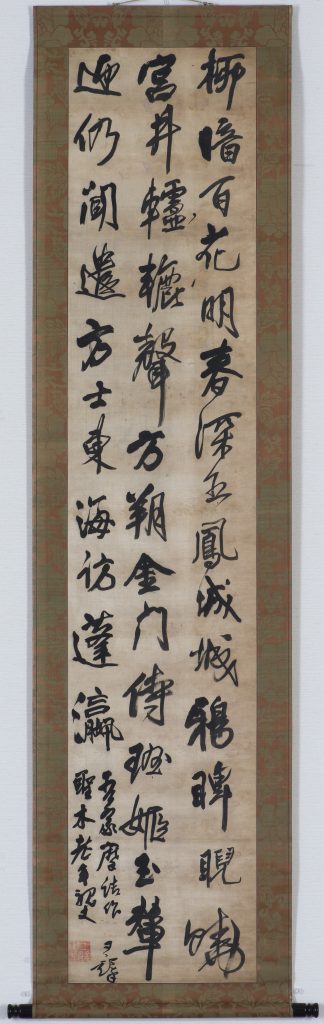 柳暗百花明春深五鳳城城鴉睥睨曉
宮井轆轤聲方朔金门侍班姬玉輦
迎仍聞遣方士東海访蓬瀛
吾家摩结作
聖木老弟親丈
王鐸